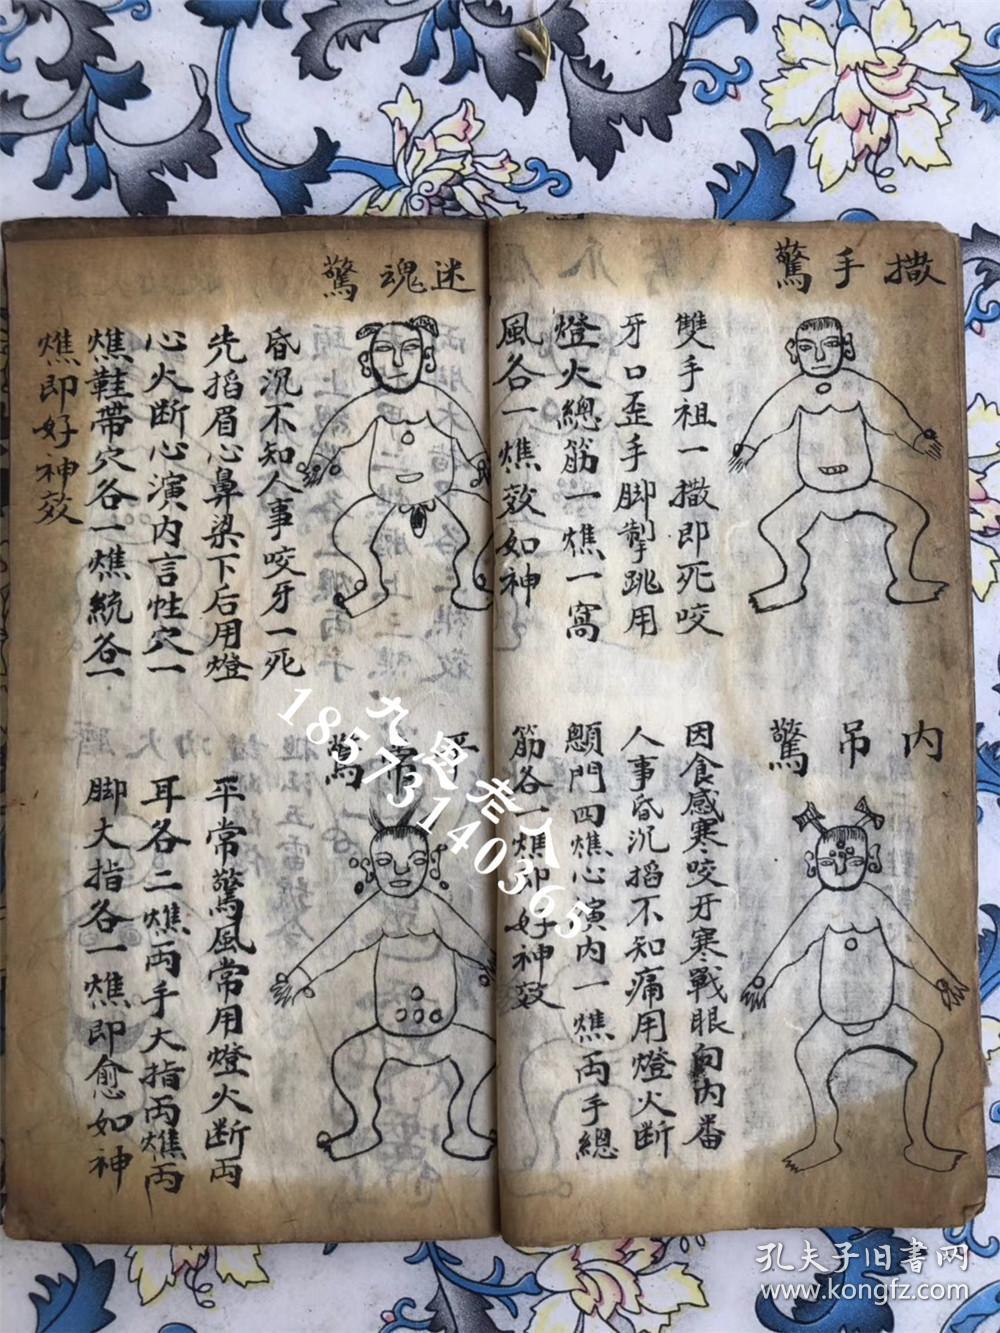 撒手驚
雙手祖一撒即死咬
牙口歪手脚掣跳用
燈火總筋一燋一窩
風各一燋效如神
内吊驚
因食感寒咬牙寒戰眼向内番
人事昏沉搯不知痛用燈火断
顖門四燋心演内一燋両手總
筋各一燋即好神效
迷魂驚
昏沉不知人事咬牙一死
先搯眉心鼻梁下后用燈
心火断心演内言性穴一
燋鞋帶穴各一燋統各一
燋即好神效
平常驚
平常驚風常用燈火断両
耳各二燋両手大指両燋両
脚大指各一燋即愈如神
九思老人
18573140365
孔夫子旧書网
www.kongfz.com